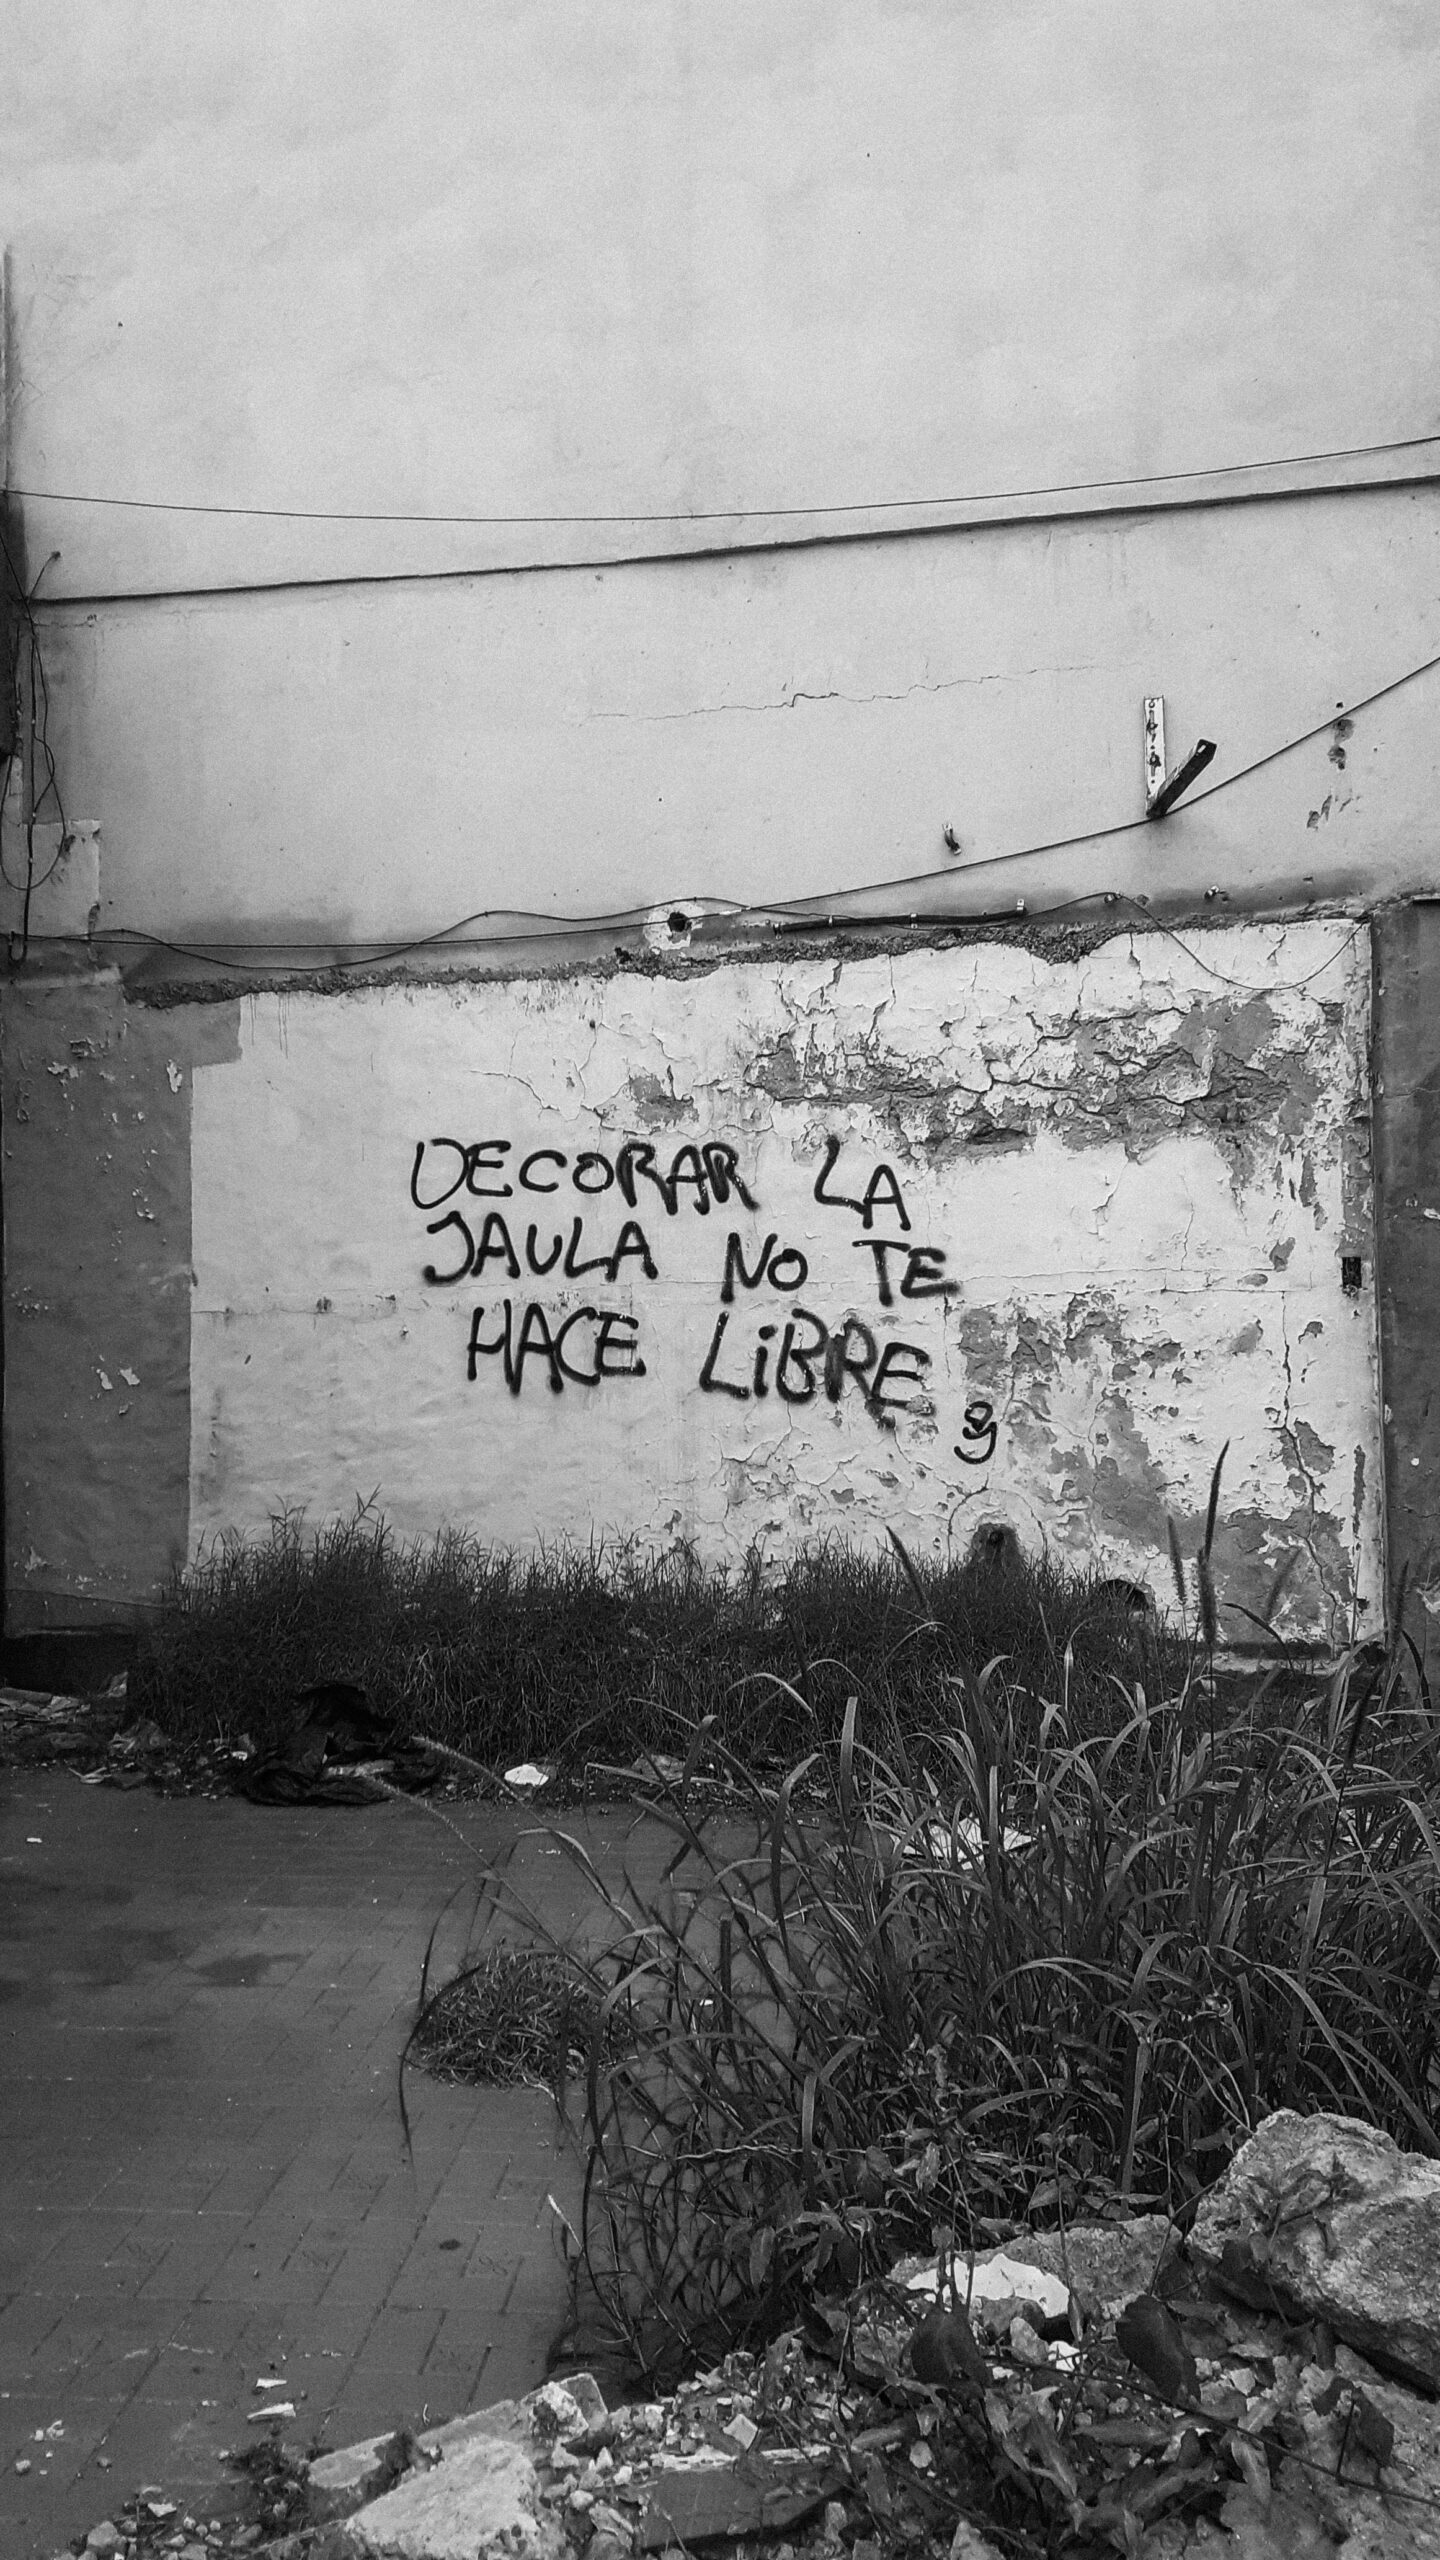 DECORAR LA
JAULA NO TE
HACE LiBRE